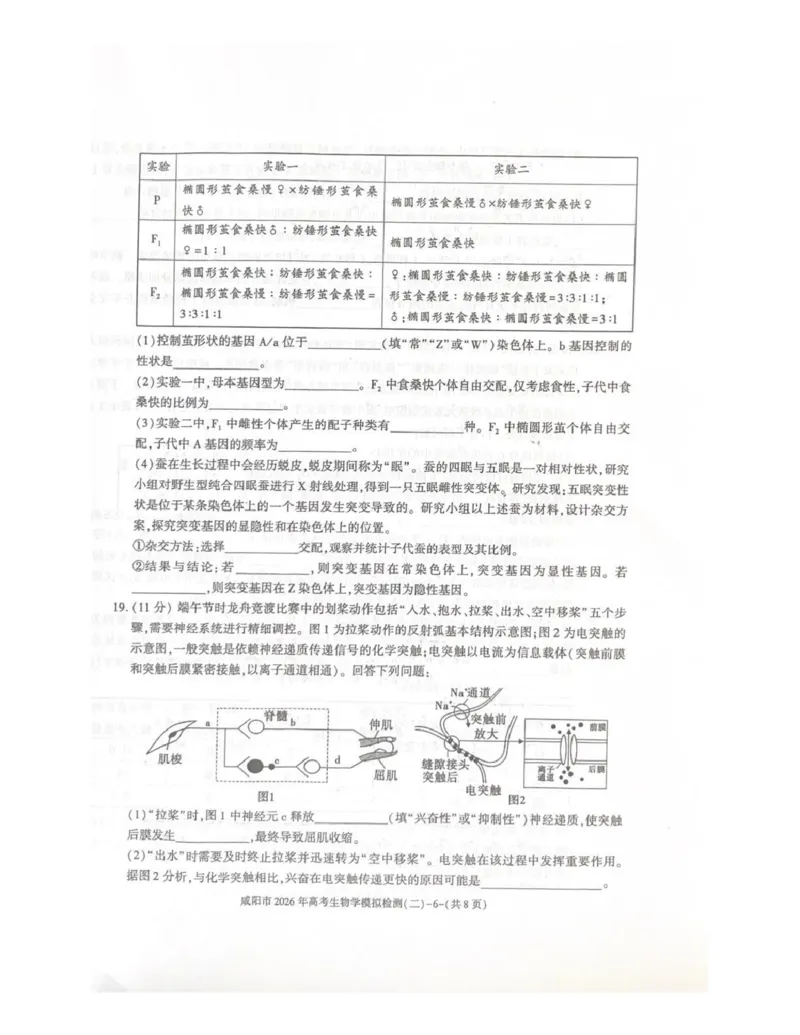 实验 实验一 实验二
P 椭圆形茧食桑慢♀×纺锤形茧食桑快♂ 椭圆形茧食桑慢♂×纺锤形茧食桑快♀
F₁ 椭圆形茧食桑快♂：纺锤形茧食桑快♀=1：1 椭圆形茧食桑快
F₂ 椭圆形茧食桑快：纺锤形茧食桑快：椭圆形茧食桑慢：纺锤形茧食桑慢=3:3:1:1 ♀:椭圆形茧食桑快：纺锤形茧食桑快：椭圆形茧食桑慢：纺锤形茧食桑慢=3:3:1:1；♂:椭圆形茧食桑快：椭圆形茧食桑慢=3:1
(1)控制茧形状的基因 A/a 位于________(填“常”“Z”或“W”)染色体上。b 基因控制的
性状是________。
(2)实验一中,母本基因型为________。F₂ 中食桑快个体自由交配,仅考虑食性,子代中食
桑快的比例为________。
(3)实验二中,F₁ 中雌性个体产生的配子种类有________种。F₂ 中椭圆形茧个体自由交
配,子代中 A 基因的频率为________。
(4)蚕在生长过程中会经历蜕皮,蜕皮期间称为“眠”。蚕的四眠与五眠是一对相对性状,研究
小组对野生型纯合四眠蚕进行 X 射线处理,得到一只五眠雌性突变体。研究发现:五眠突变性
状是位于某条染色体上的一个基因发生突变导致的。研究小组以上述蚕为材料,设计杂交方
案,探究突变基因的显隐性和在染色体上的位置。
①杂交方法:选择________交配,观察并统计子代蚕的表型及其比例。
②结果与结论:若________,则突变基因在常染色体上,突变基因为显性基因。若
________,则突变基因在 Z 染色体上,突变基因为隐性基因。
19.(11 分) 端午节时龙舟竞渡比赛中的划桨动作包括“入水、抱水、拉桨、出水、空中移桨”五个步
骤,需要神经系统进行精细调控。图 1 为拉桨动作的反射弧基本结构示意图;图 2 为电突触的
示意图,一般突触是依赖神经递质传递信号的化学突触;电突触以电流为信息载体(突触前膜
和突触后膜紧密接触,以离子通道相通)。回答下列问题:
脊髓
a b c d
肌梭
伸肌
屈肌
图1
Na⁺通道
Na⁺
突触前
放大
缝隙接头
突触后
电突触
前膜
离子
通道
后膜
图2
(1)“拉桨”时,图 1 中神经元 c 释放________(填“兴奋性”或“抑制性”)神经递质,使突触
后膜发生________,最终导致屈肌收缩。
(2)“出水”时需要及时终止拉桨并迅速转为“空中移桨”。电突触在该过程中发挥重要作用。
据图 2 分析,与化学突触相比,兴奋在电突触传递更快的原因可能是________。
咸阳市 2026 年高考生物学模拟检测(二)-6-(共 8 页)